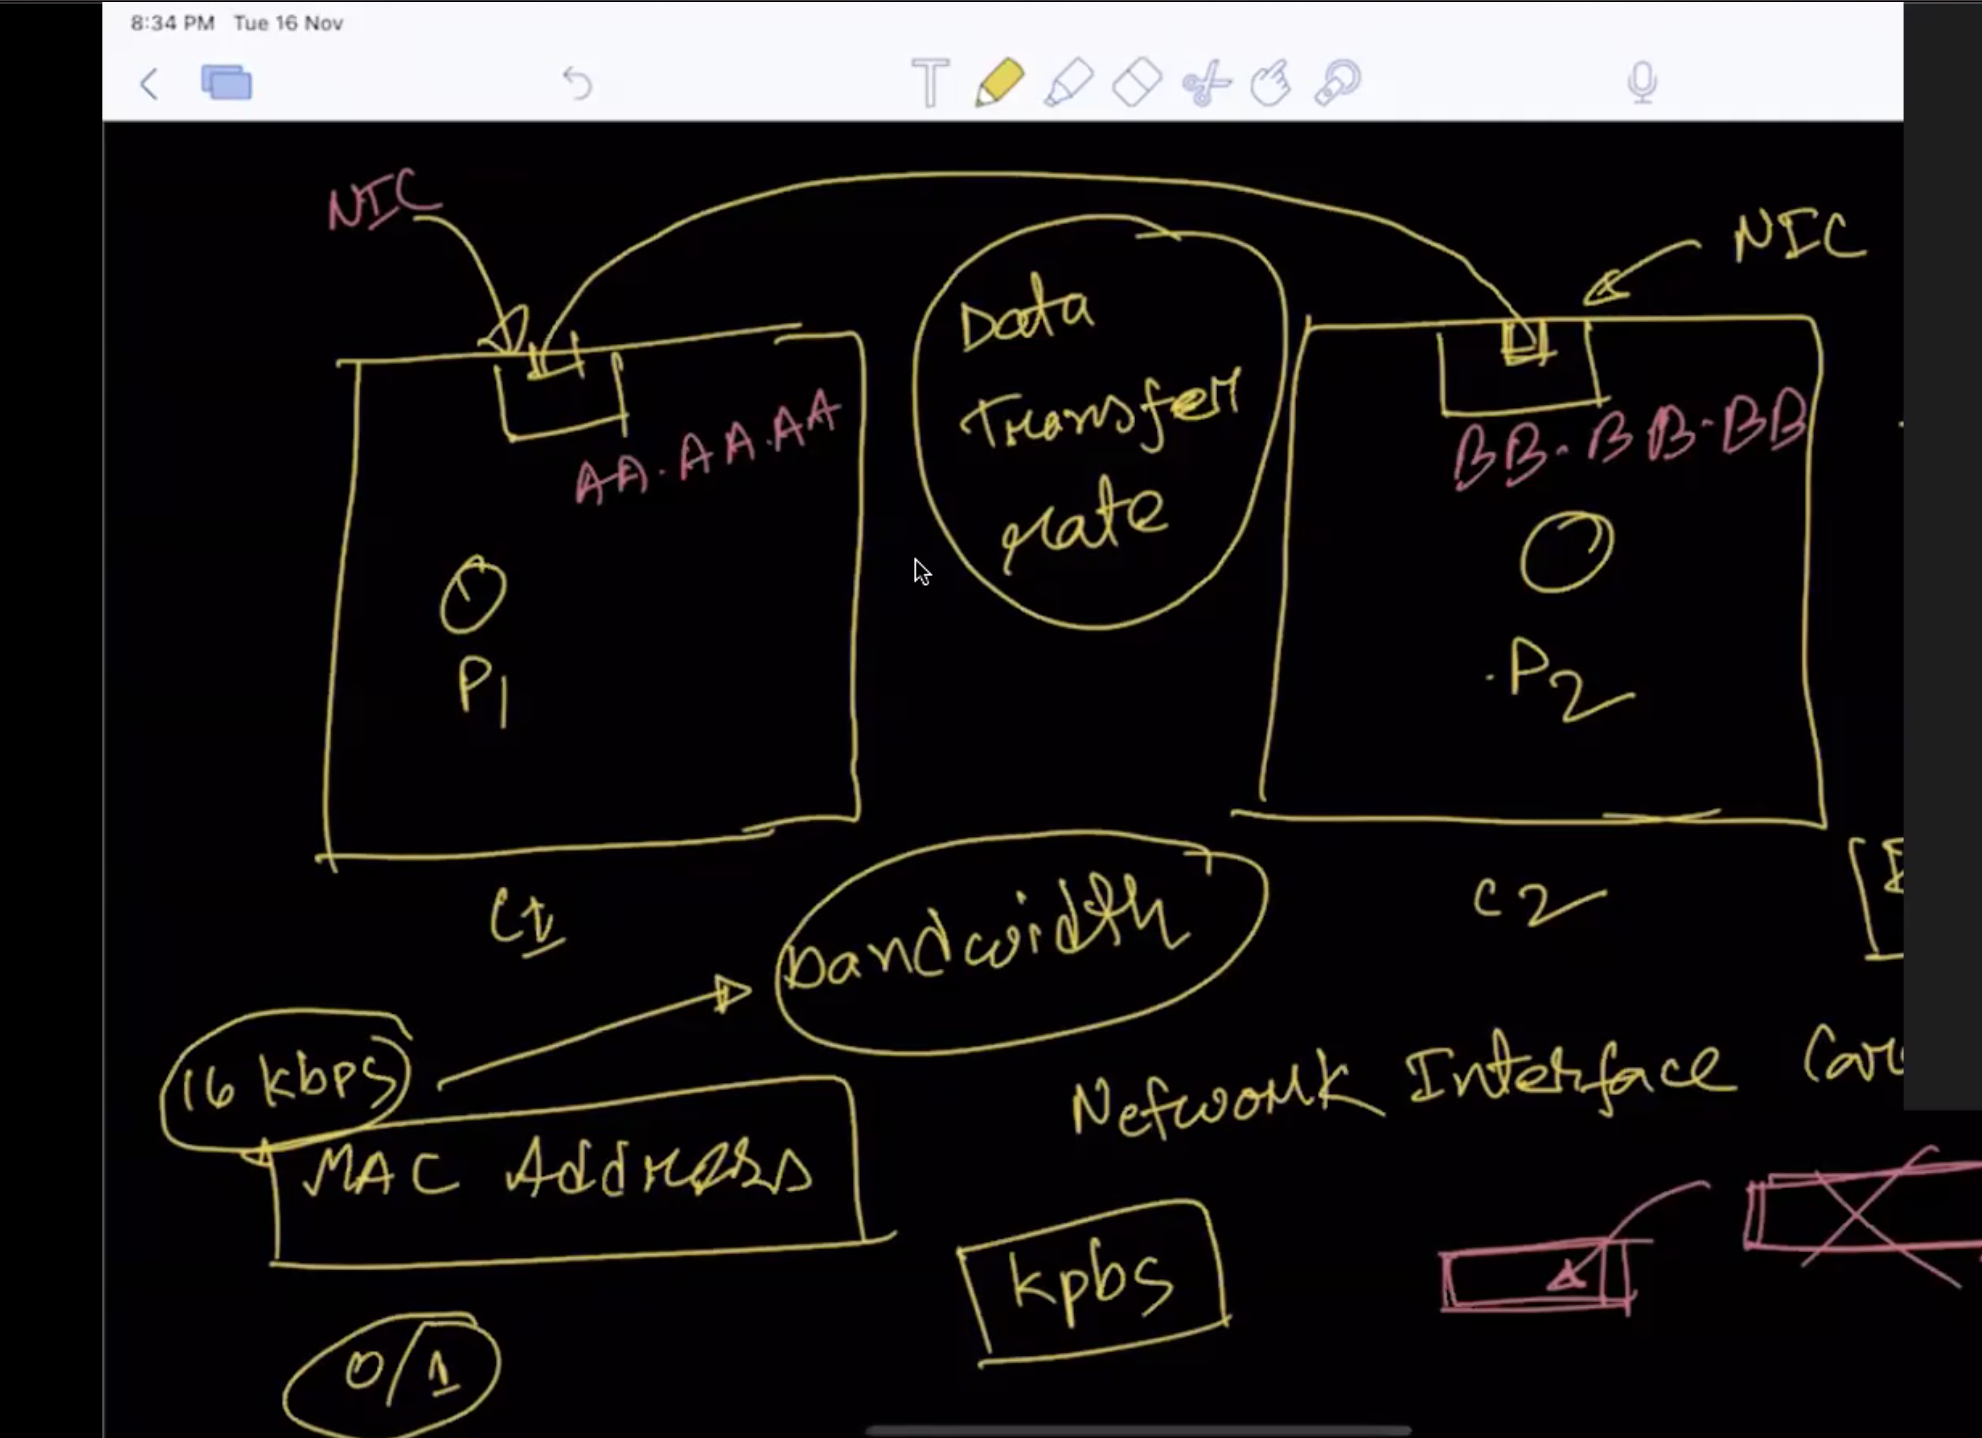 8:34 PM Tue 16 Nov
NIC
NIC
Data
Transfer
rate
AA.AA.AA
BB.BB.BB
P1
P2
C1
C2
bandwidth
16 kbps
Network Interface Car
MAC Address
kpbs
0/1